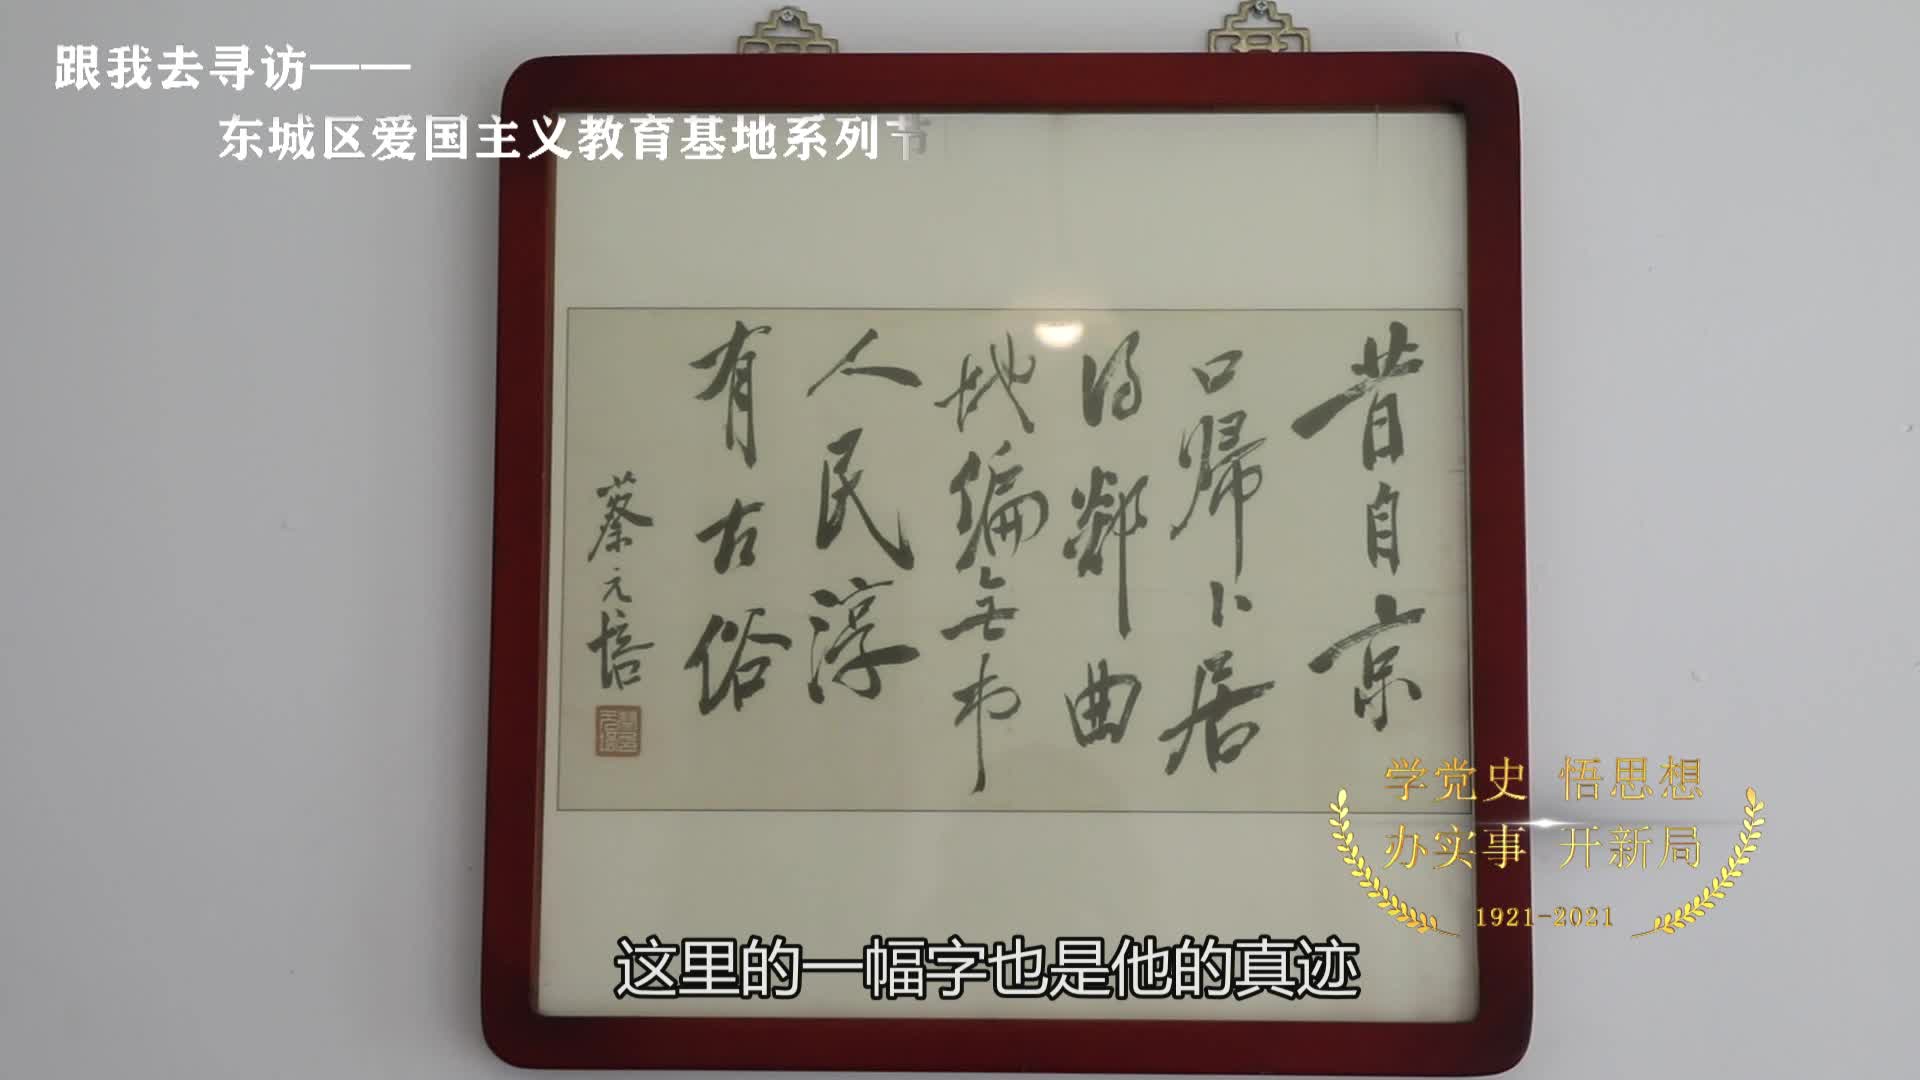 跟我去寻访——
东城区爱国主义教育基地系列节
昔自京
口歸卜居
得鄰曲
地偏無市
人民淳
有古俗
蔡元培
学党史 悟思想
办实事 开新局
1921-2021
这里的一幅字也是他的真迹